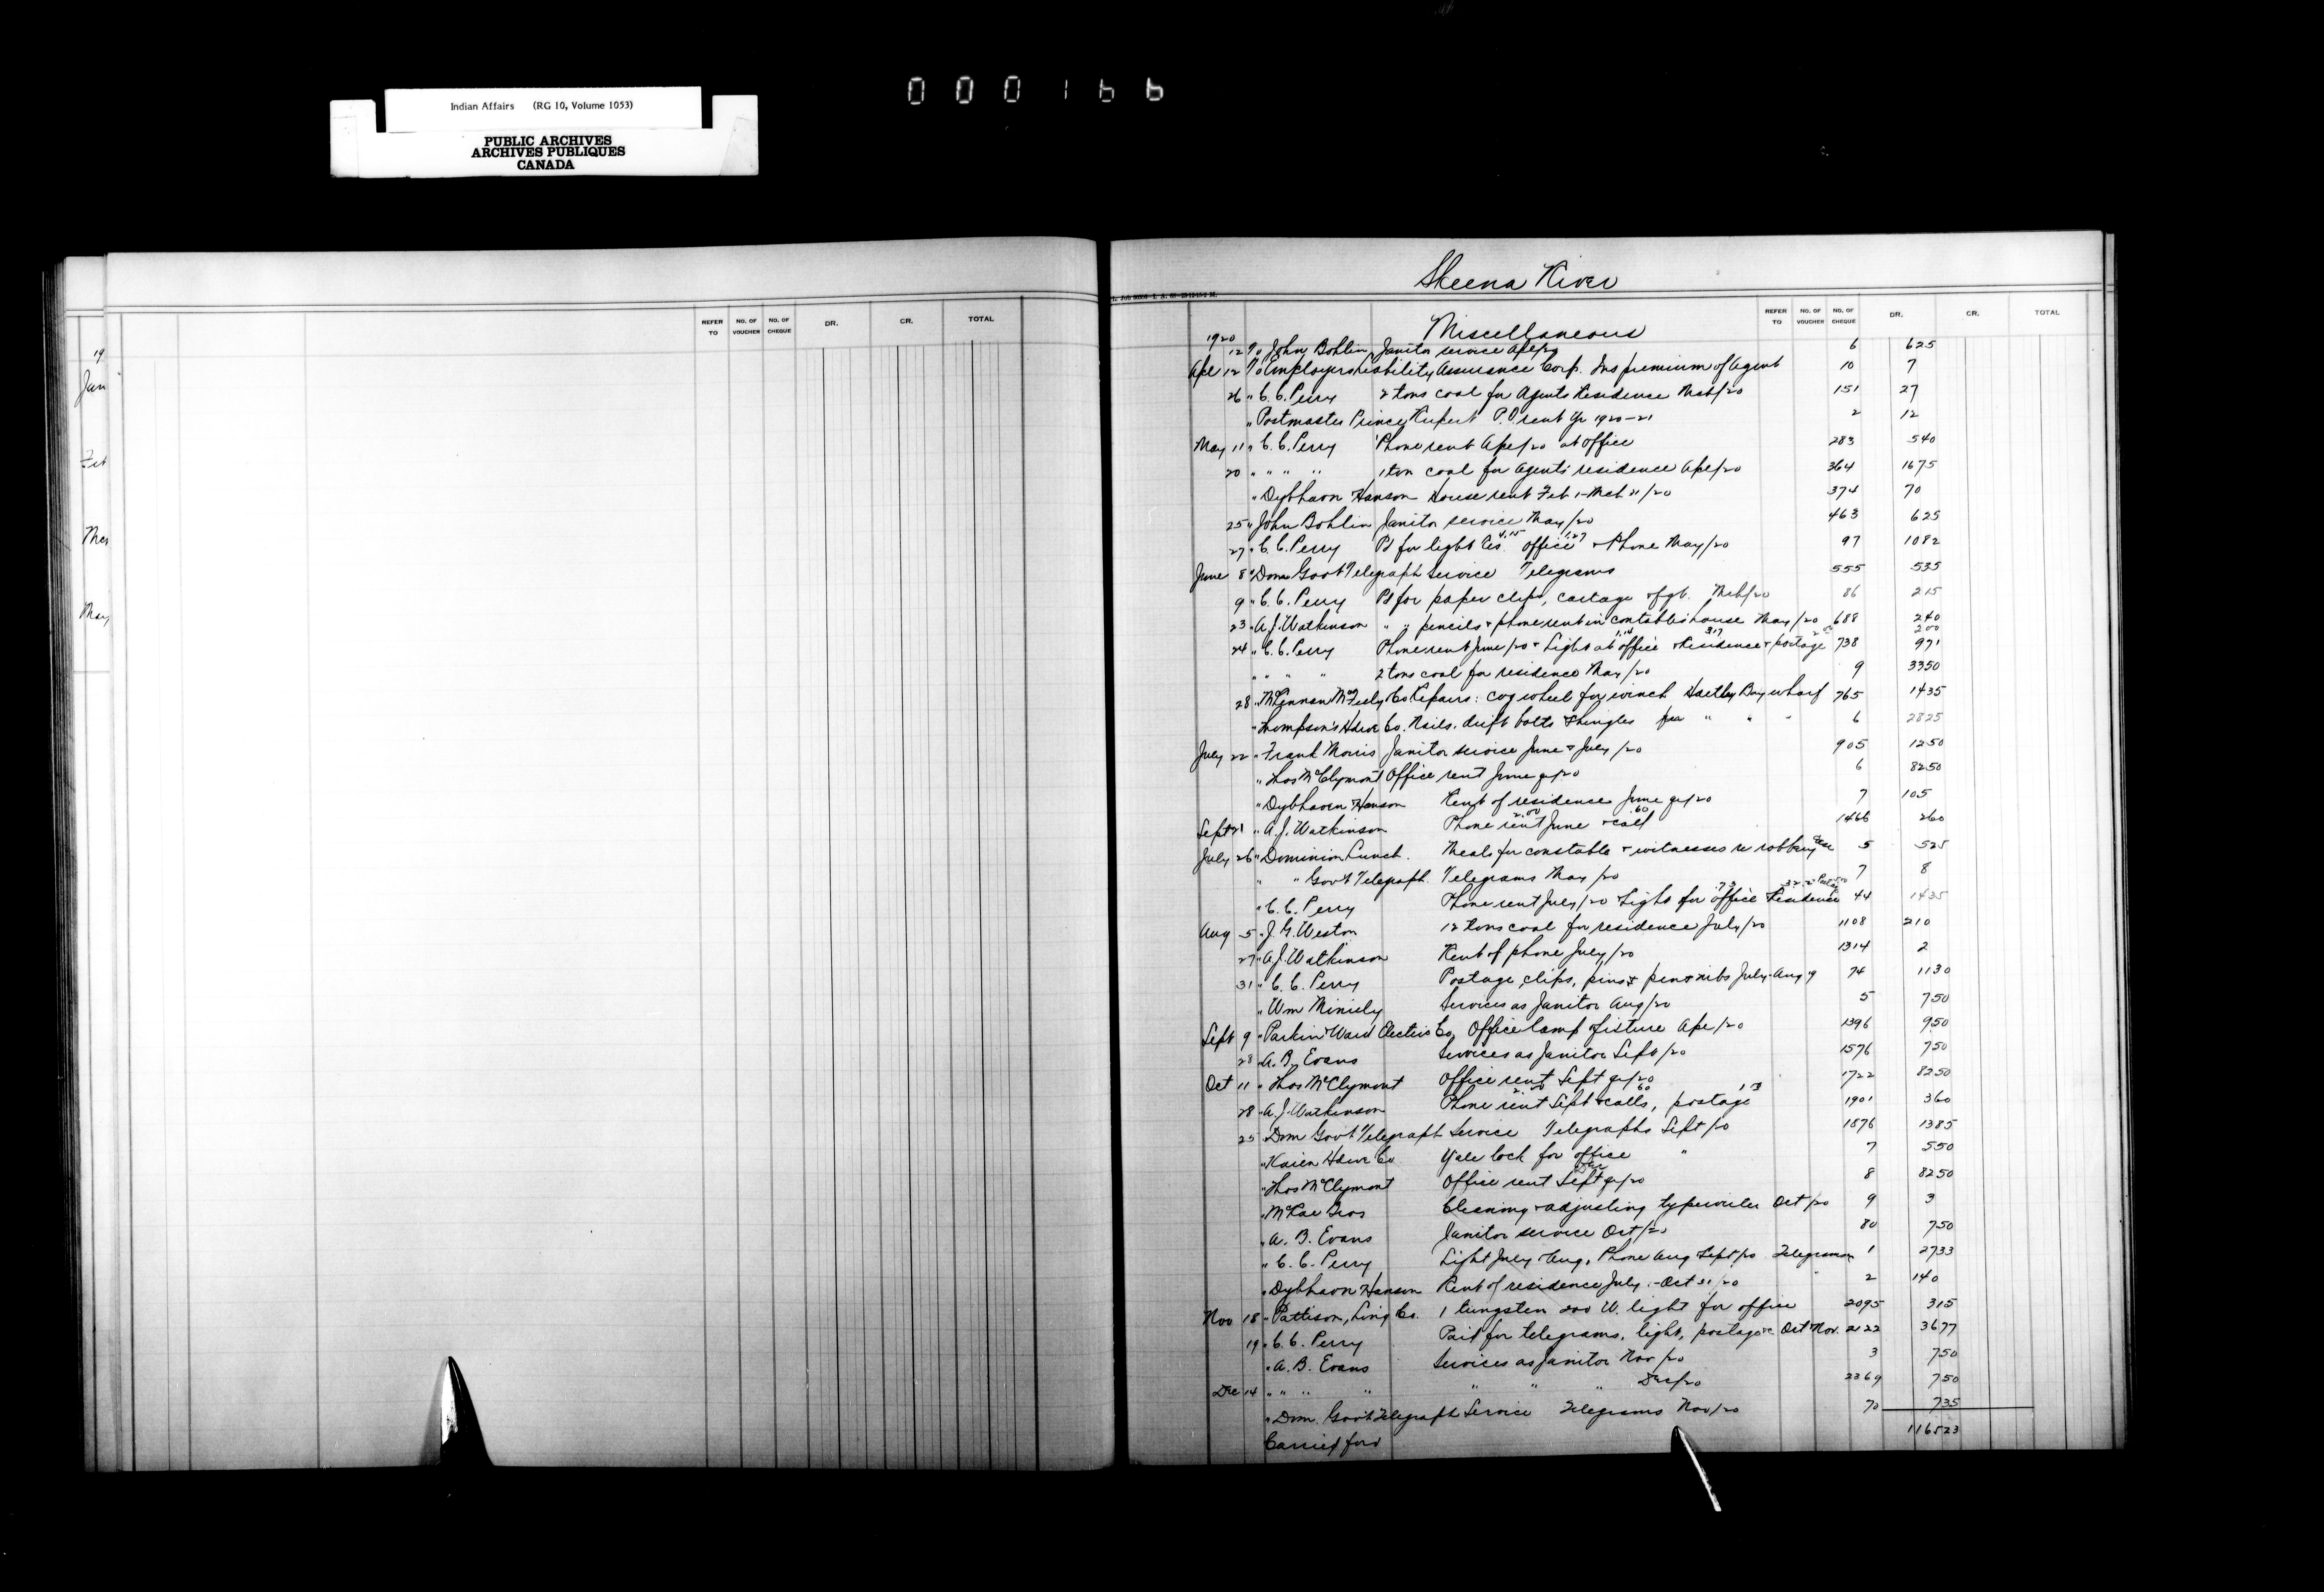 000166
Indian Affairs (RG 10, Volume 1053)
PUBLIC ARCHIVES
ARCHIVES PUBLIQUES
CANADA
REFER TO NO. OF VOUCHER NO. OF CHEQUE DR. CR. TOTAL
19
Jan
Feb
Mar
May
Skeena River
REFER TO NO. OF VOUCHER NO. OF CHEQUE DR. CR. TOTAL
Miscellaneous
1920
12 To John Bohlin Janitor service Apl/20 6 625
Apl 12 To Employers Liability Assurance Corp. Ins premium of Agent 10 7
26 " C.C. Perry 2 tons coal for Agents Residence Mch/20 151 27
" Postmaster Prince Rupert P.O. rent yr 1920-21 2 12
May 11 " C.C. Perry Phone rent Apl/20 at office 283 540
20 " " " " 1 ton coal for Agents residence Apl/20 364 1675
" Dybhavn Hanson House rent Feb 1-Mch 31/20 374 70
25 " John Bohlin Janitor service May/20 463 625
27 " C.C. Perry Pd for light Res. 4.15 office 1.27 & Phone May/20 97 1082
June 8 " Dom Govt Telegraph Service Telegrams 555 535
9 " C.C. Perry Pd for paper clips, cartage & fgt. Mch/20 86 215
23 " A.J. Watkinson " " pencils & phone rent in constables house May/20 688 240
200
24 " C.C. Perry Phone rent June/20 & Light at office 1.14 & Residence 3.17 & postage 738 971
" " " " 2 tons coal for residence May/20 9 3350
28 " McLennan McFeely Co Repairs: cog wheel for winch Hartley Bay wharf 765 1435
" Thompson's Hdwe Co. Nails, drift bolts & shingles for " " " 6 2825
July 22 " Frank Morris Janitor service June & July/20 905 1250
" Thos McClymont Office rent June qr/20 6 8250
" Dybhavn Hanson Rent of residence June qr/20 7 105
Sept 21 " A.J. Watkinson Phone rent 2.00 June & call .60 1466 260
July 26 " Dominion Lunch. Meals for constable & witnesses re robbery case 5 525
" " Govt Telegraph. Telegrams May/20 7 8
" C.C. Perry Phone rent July/20 Light for office .73 Residence 44 1435
Aug 5 " J.G. Weston 12 tons coal for residence July/20 1108 210
27 " A.J. Watkinson Rent of phone July/20 1314 2
31 " C.C. Perry Postage, clips, pins & pen & nibs July-Aug 9 74 1130
" Wm Miniely Services as Janitor Aug/20 5 750
Sept 9 " Parkin Ward Electric Co, Office lamp fixture Apl/20 1396 950
28 " A.B. Evans Services as Janitor Sept/20 1576 750
Oct 11 " Thos McClymont Office rent Sept qr/20 1722 8250
28 " A.J. Watkinson Phone rent 2.00 Sept & calls .60, postage 1901 360
25 " Dom Govt Telegraph Service Telegraphs Sept/20 1876 1385
" Kaien Hdwe Co Yale lock for office " 7 550
" Thos McClymont Office rent Sept Dec qr/20 8 8250
" McRae Bros Cleaning & adjusting typewriter Oct/20 9 3
" A.B. Evans Janitor service Oct/20 80 750
" C.C. Perry Light July & Aug, Phone Aug Sept/20 Telegrams 1 2733
" Dybhavn Hanson Rent of residence July - Oct 31/20 2 140
Nov 18 " Pattison, Ling Co. 1 tungsten 200 W. light for office 2095 315
19 " C.C. Perry Paid for telegrams, light, postage &c Oct Nov. 2122 3677
" A.B. Evans Services as Janitor Nov/20 3 750
Dec 14 " " " " " " " Dec/20 2369 750
" Dom. Govt Telegraph Service Telegrams Nov/20 70 735
Carried ford 116523